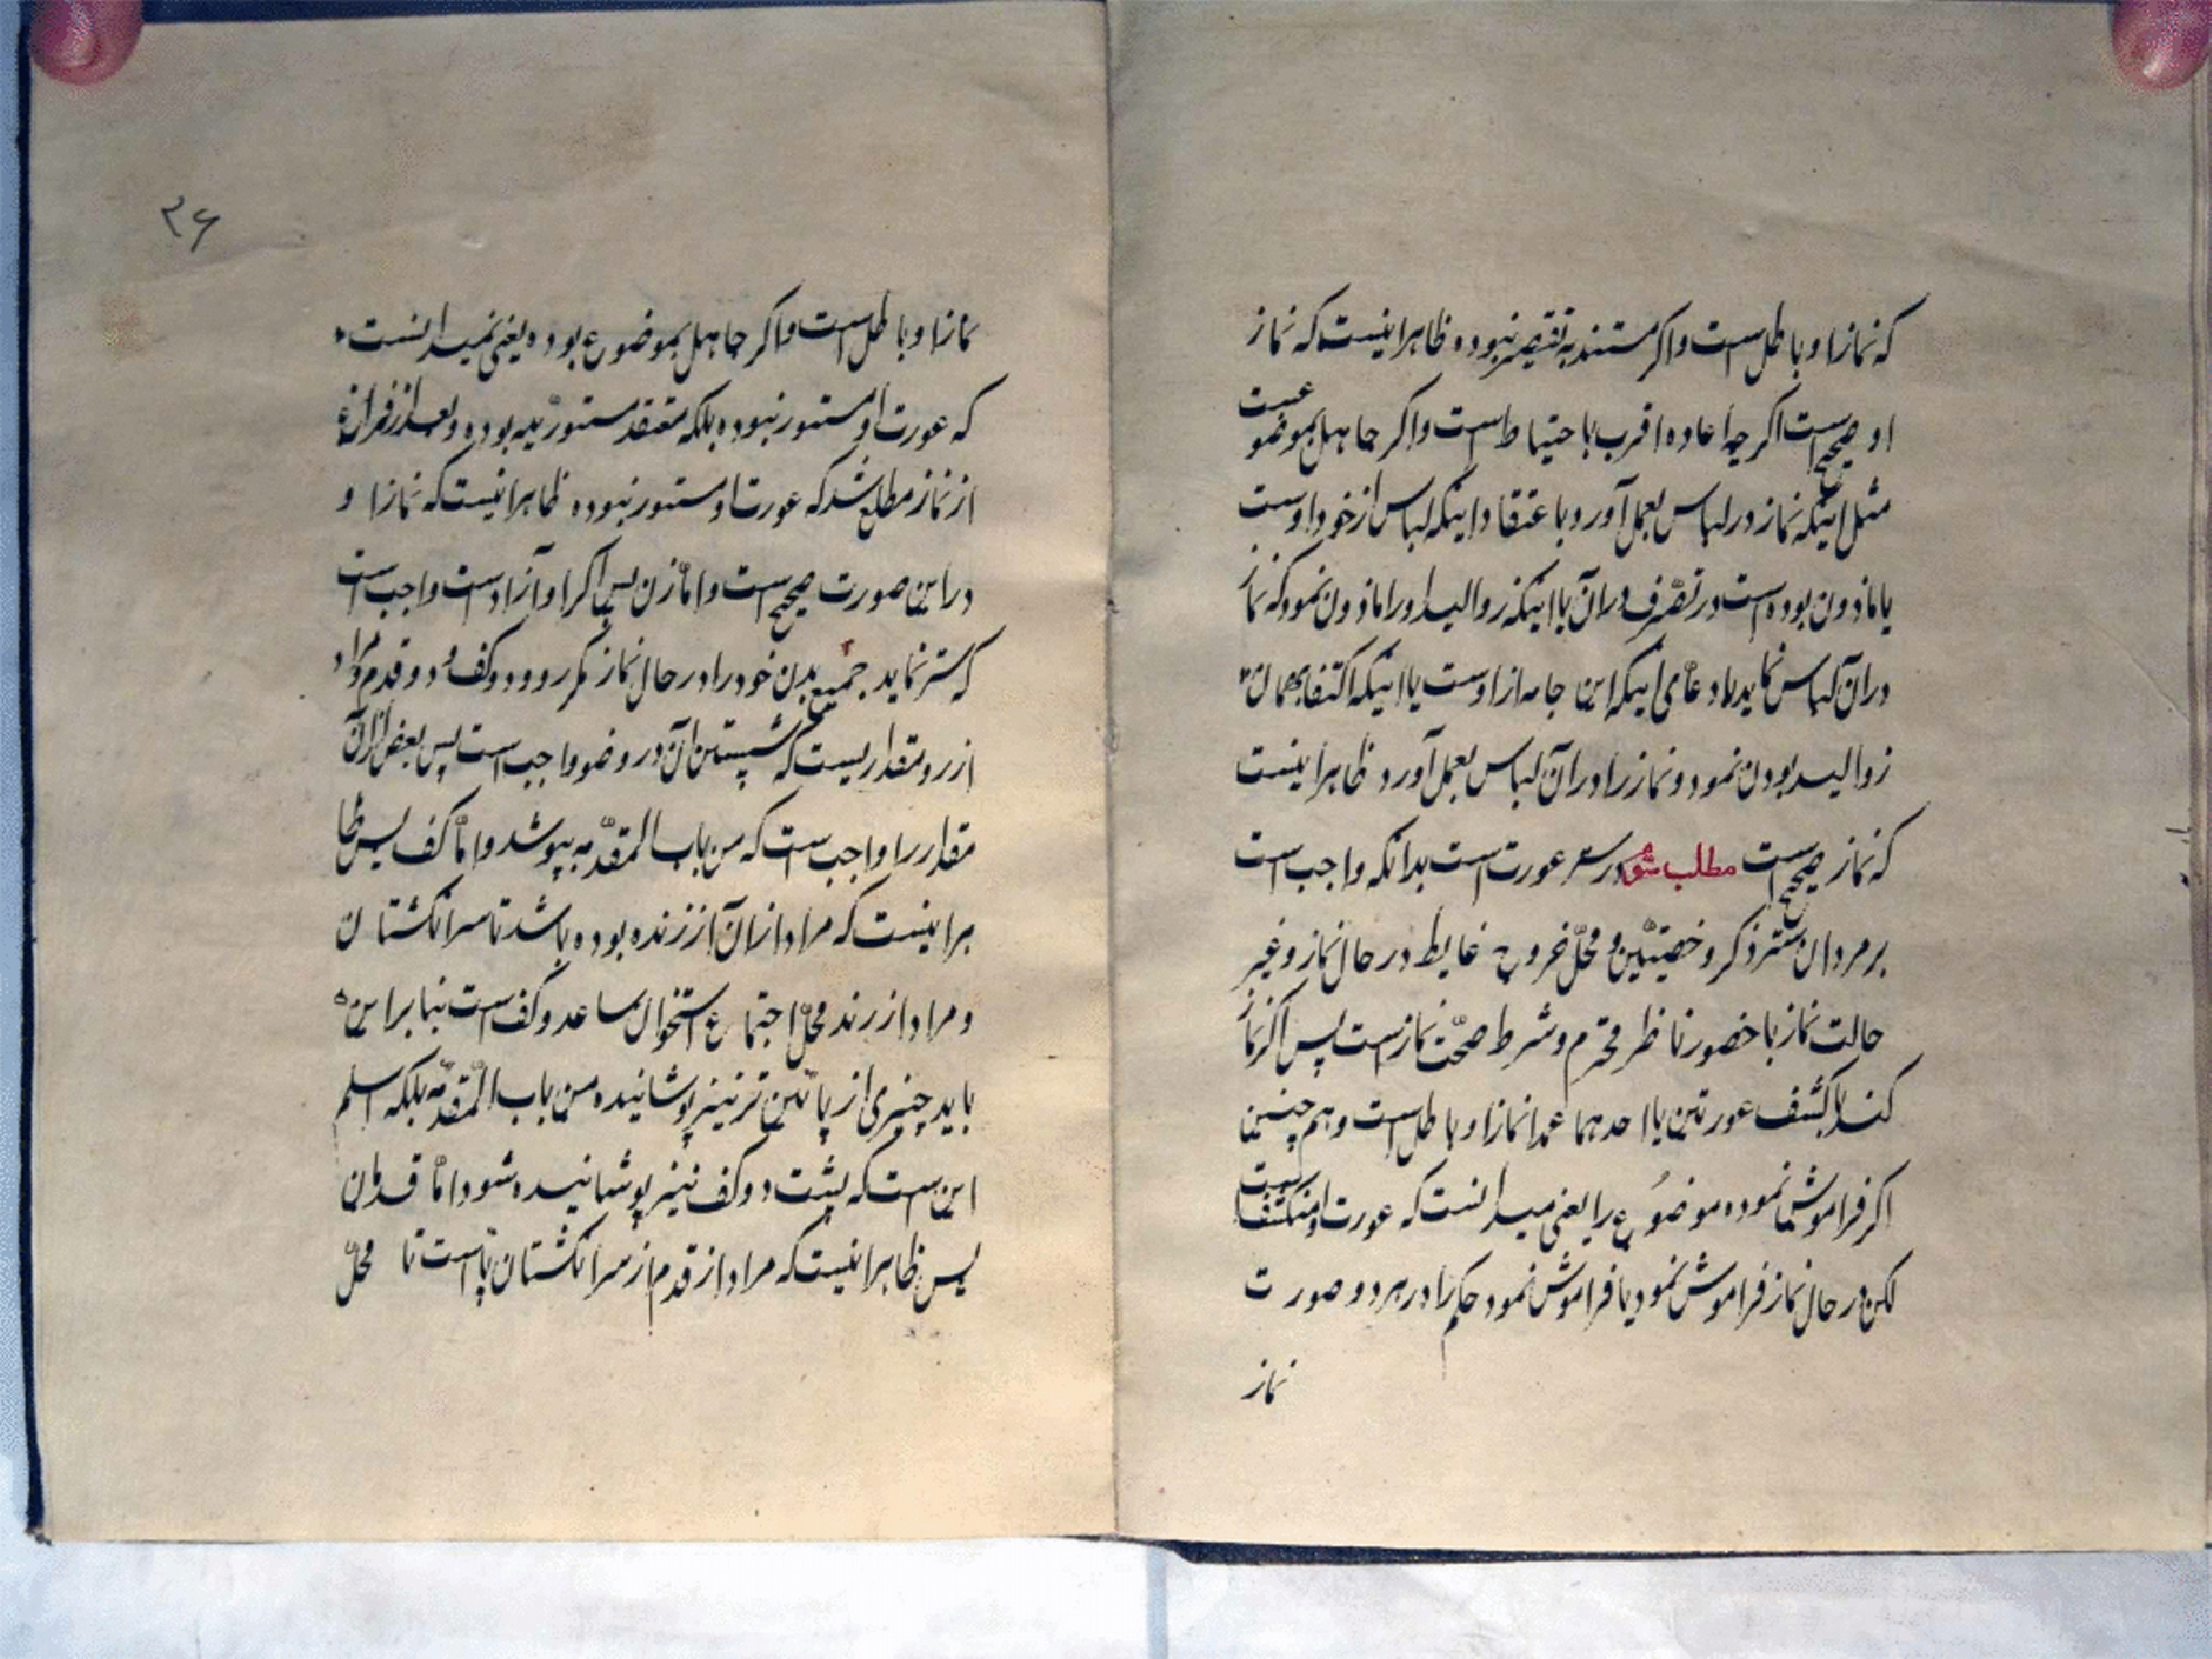 که نماز او باطل است و اگر مستند به تقصیر نبوده ظاهر اینست که نماز
او صحیح است اگر چه اعاده اقرب باحتیاط است و اگر جاهل بموضوعست
مثل اینکه نماز در لباس بعمل آورد با عتقاد اینکه لباس از خود اوست
یا ماذون بوده است در تصرف در آن یا اینکه ذوالید او را ماذون نمود که نماز
در آن لباس نماید بادعای اینکه این جامه از اوست یا اینکه اکتفا بهمان
ذوالید بودن نمود و نماز را در آن لباس بعمل آورد ظاهر اینست
که نماز صحیح است مطلب در ستر عورت است بدانکه واجب است
بر مردان ستر ذکر و خصیتین و محل خروج غایط در حال نماز و غیر
حالت نماز با حضور ناظر محترم و شرط صحت نماز است پس اگر نماز
کند با کشف عورتین یا احدهما عمدا نماز او باطل است و هم چنین
اگر فراموش نموده موضوع را یعنی میدانست که عورت او منکشف است
لکن در حال نماز فراموش نمود یا فراموش نمود حکم را در هر دو صورت
نماز
۳۶
نماز او باطل است و اگر جاهل بموضوع بوده یعنی نمیدانست
که عورت او مستور نبوده بلکه معتقد مستوریه بوده و بعد از فراغ
از نماز مطلع شد که عورت او مستور نبوده ظاهر اینست که نماز او
در این صورت صحیح است و اما زن پس اگر او آزاد است واجب است
که ستر نماید جمیع بدن خود را در حال نماز مگر رو و دو کف و دو قدم و مراد
از رو مقداریست که شستن آن در وضو واجب است پس بعض از آن
مقدار را واجب است که من باب المقدمه بپوشد و اما کف پس ظا
هر اینست که مراد از آن از زنده بوده باشد تا سر انگشتان
و مراد از زند محل اجتماع استخوان ساعد و کف است بنا بر این
باید چیزی از پائین تر نیز پوشانیده من باب المقدمه بلکه اسلم
این است که پشت دو کف نیز پوشانیده شود اما قدمان
پس ظاهر اینست که مراد از قدم از سر انگشتان پا است تا محل